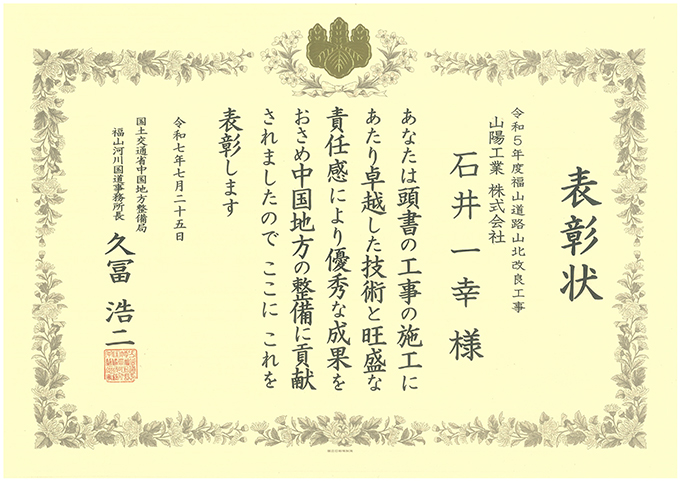 表彰状
令和5年度福山道路山北改良工事
山陽工業 株式会社
石井 一幸 様
あなたは頭書の工事の施工に
あたり卓越した技術と旺盛な
責任感により優秀な成果を
おさめ中国地方の整備に貢献
されましたので ここに これを
表彰します
令和七年七月二十五日
国土交通省中国地方整備局
福山河川国道事務所長
久冨 浩二